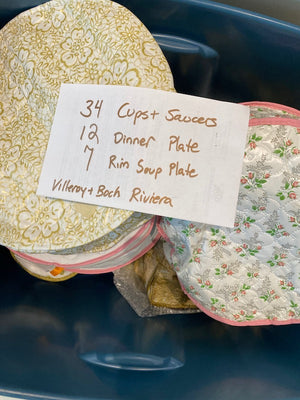 34 Cups + Saucers
12 Dinner Plate
7 Rim Soup Plate
Villeroy + Boch Riviera